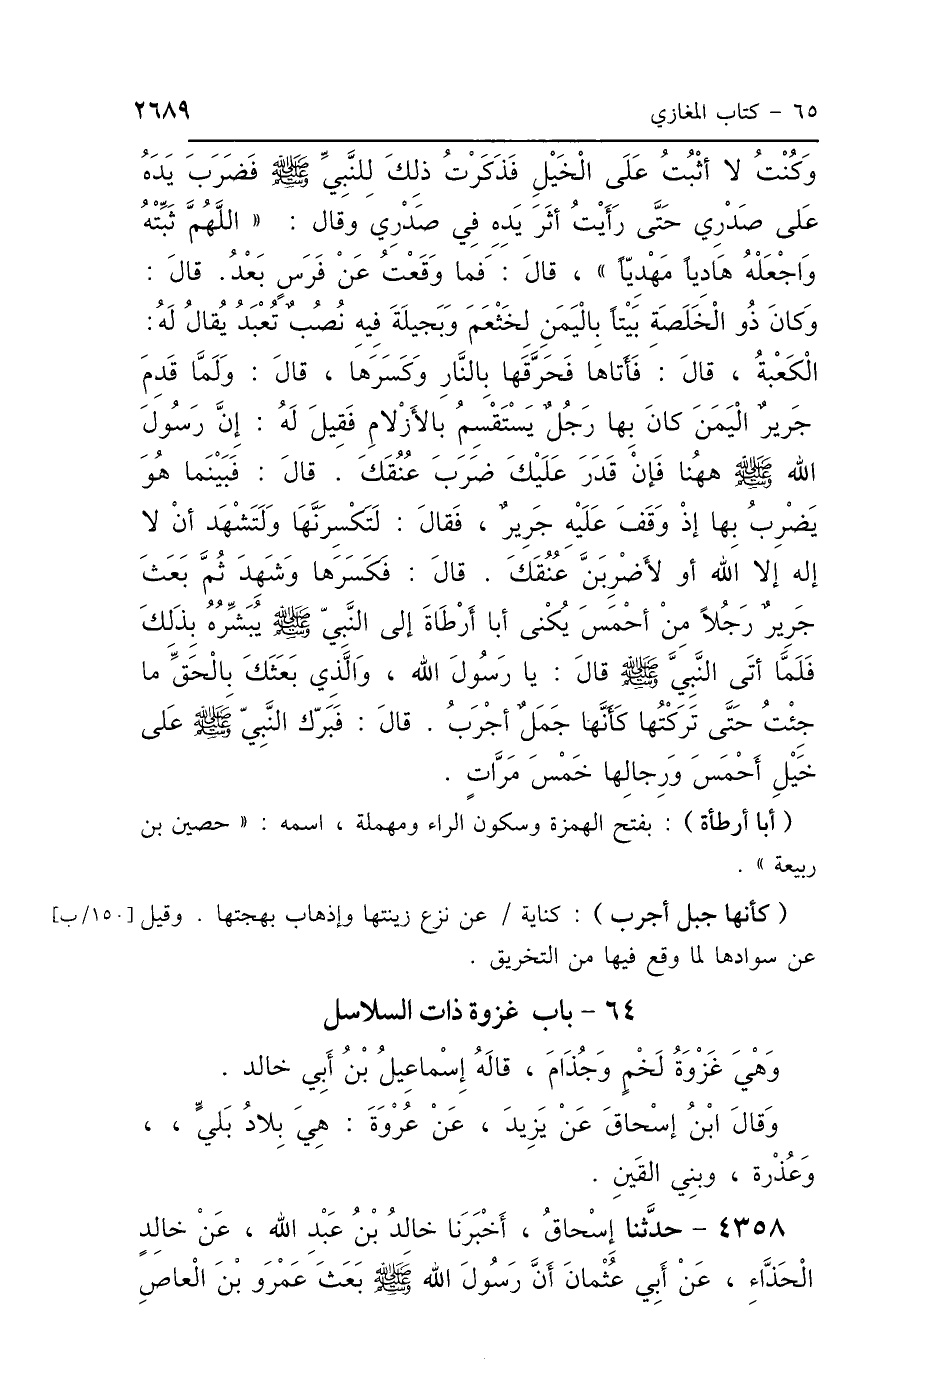 ٦٥ - كتاب المغازي ٢٦٨٩
وَكُنْتُ لا أثْبُتُ عَلَى الْخَيْلِ فَذَكَرْتُ ذلِكَ لِلنَّبِيِّ ﷺ فَضَرَبَ يَدَهُ
عَلى صَدْرِي حَتَّى رَأَيْتُ أثَرَ يَدِهِ فِي صَدْرِي وقال : « اللَّهُمَّ ثَبِّتْهُ
وَاجْعَلْهُ هَادِياً مَهْدِيّاً » ، قالَ : فما وَقَعْتُ عَنْ فَرَسٍ بَعْدُ. قالَ :
وَكانَ ذُو الْخَلَصَةِ بَيْتاً بِالْيَمَنِ لِخَثْعَمَ وَبَجِيلَةَ فِيهِ نُصُبٌ تُعْبَدُ يُقالُ لَهُ:
الْكَعْبَةُ ، قالَ : فَأتاها فَحَرَّقَها بِالنَّارِ وَكَسَرَها ، قالَ : وَلَمَّا قَدِمَ
جَرِيرٌ الْيَمَنَ كانَ بِها رَجُلٌ يَسْتَقْسِمُ بِالأَزْلامِ فَقِيلَ لَهُ : إنَّ رَسُولَ
الله ﷺ ههُنا فَإنْ قَدَرَ عَلَيْكَ ضَرَبَ عُنُقَكَ . قالَ : فَبَيْنَما هُوَ
يَضْرِبُ بِها إذْ وَقَفَ عَلَيْهِ جَرِيرٌ ، فَقالَ : لَتَكْسِرَنَّهَا وَلَتَشْهَد أنْ لا
إله إلا الله أو لأَضْرِبَنَّ عُنُقَكَ . قالَ : فَكَسَرَها وشَهِدَ ثُمَّ بَعَثَ
جَرِيرٌ رَجُلاً مِنْ أحْمَسَ يُكْنى أبا أَرْطَاةَ إلى النَّبِيّ ﷺ يُبَشِّرُهُ بِذَلِكَ
فَلَمَّا أتَى النَّبِيَّ ﷺ قالَ : يا رَسُولَ الله ، وَالَّذِي بَعَثَكَ بِالْحَقِّ ما
جِئْتُ حَتَّى تَرَكْتُها كَأنَّها جَمَلٌ أجْرَبُ . قالَ : فَبَرّك النَّبِيّ ﷺ عَلى
خَيْلِ أَحْمَسَ وَرِجالِها خَمْسَ مَرَّاتٍ .
( أبا أرطأة ) : بفتح الهمزة وسكون الراء ومهملة ، اسمه : « حصين بن
ربيعة » .
( كأنها جبل أجرب ) : كناية / عن نزع زينتها وإذهاب بهجتها . وقيل [١٥٠/ب]
عن سوادها لما وقع فيها من التخريق .
٦٤ - باب غزوة ذات السلاسل
وَهْيَ غَزْوَةُ لَخْمٍ وَجُذَامَ ، قالَهُ إسْماعِيلُ بْنُ أَبِي خالد .
وَقالَ ابْنُ إسْحاقَ عَنْ يَزِيدَ ، عَنْ عُرْوَةَ : هِيَ بِلادُ بَلِيٍّ ، ،
وَعُذْرة ، وبنِي القَينِ .
٤٣٥٨ - حدَّثنا إسْحاقُ ، أَخْبَرَنَا خالدُ بْنُ عَبْدِ الله ، عَنْ خالِدٍ
الْحَذَّاءِ ، عَنْ أَبِي عُثْمانَ أَنَّ رَسُولَ الله ﷺ بَعَثَ عَمْرَو بْنَ الْعاصِ